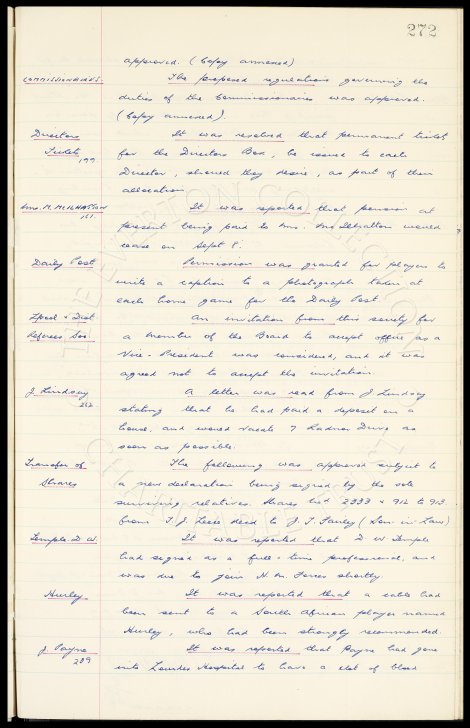 272
approved. (Copy annexed)
COMMISSIONAIRES. The proposed regulations governing the
duties of the Commissionaires was approved.
(Copy annexed).
Directors It was resolved that permanent tickets
Tickets 199 for the Directors Box, be issued to each
Director, should they desire, as part of their
allocation
Mrs. M. McILHATTON It was reported that pension at
161. present being paid to Mrs. McIlhatton would
cease on Sept 8.
Daily Post Permission was granted for players to
write a caption to a photograph taken at
each home game for the Daily Post
Lpool & Dist An invitation from this society for
Referees Soc a member of the Board to accept office as a
Vice-President was considered, and it was
agreed not to accept the invitation.
J. Lindsay A letter was read from J Lindsay
262 stating that he had paid a deposit on a
house, and would vacate 7 Ladnor Drive as
soon as possible.
Transfer of The following was approved subject to
Shares a new declaration being signed by the sole
surviving relatives. Shares No 2333 & 912 to 913
from T. J. Lees decd to J. T. (Son in Law)
Temple. D W. It was reported that D W Temple
had signed as a full-time professional, and
was due to join H. M. Forces shortly.
Hurley It was reported that a cable had
been sent to a South African player named
Hurley, who had been strongly recommended.
J. Payne It was reported that Payne had gone
239 into Lourdes Hospital to have a clot of blood
THE EVERTON COLLECTION
CHARITABLE TRUST